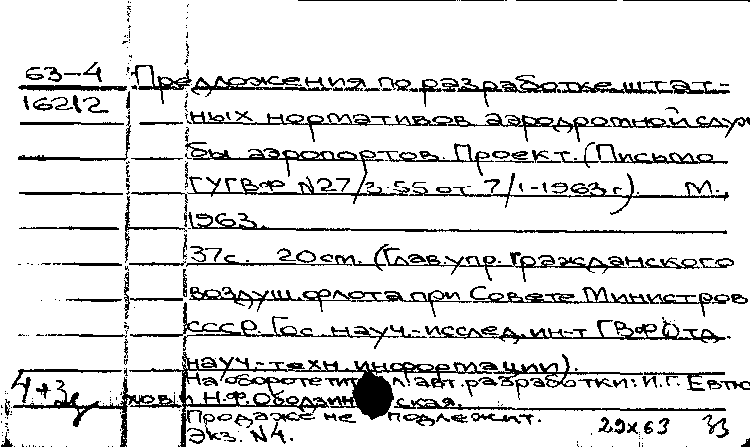 63-4 Предложения по разработке штат-
16212 ных нормативов аэродромной служ
бы аэропортов. Проект. (Письмо
ГУГВФ N27/3-55 от 7/1-1963 г.) М.,
1963.
37с. 20 cm. (Глав. упр. Гражданского
воздуш. флота при Совете Министров
СССР. Гос. науч.-исслед. ин-т ГВФ. Отд.
науч.-техн. информации).
На обороте тит. л. авт. разработки: И.Г. Евтю
хов и Н.Ф. Ободзин ская.
Продаже не подлежит.
Экз. N4. 29 X 63 33